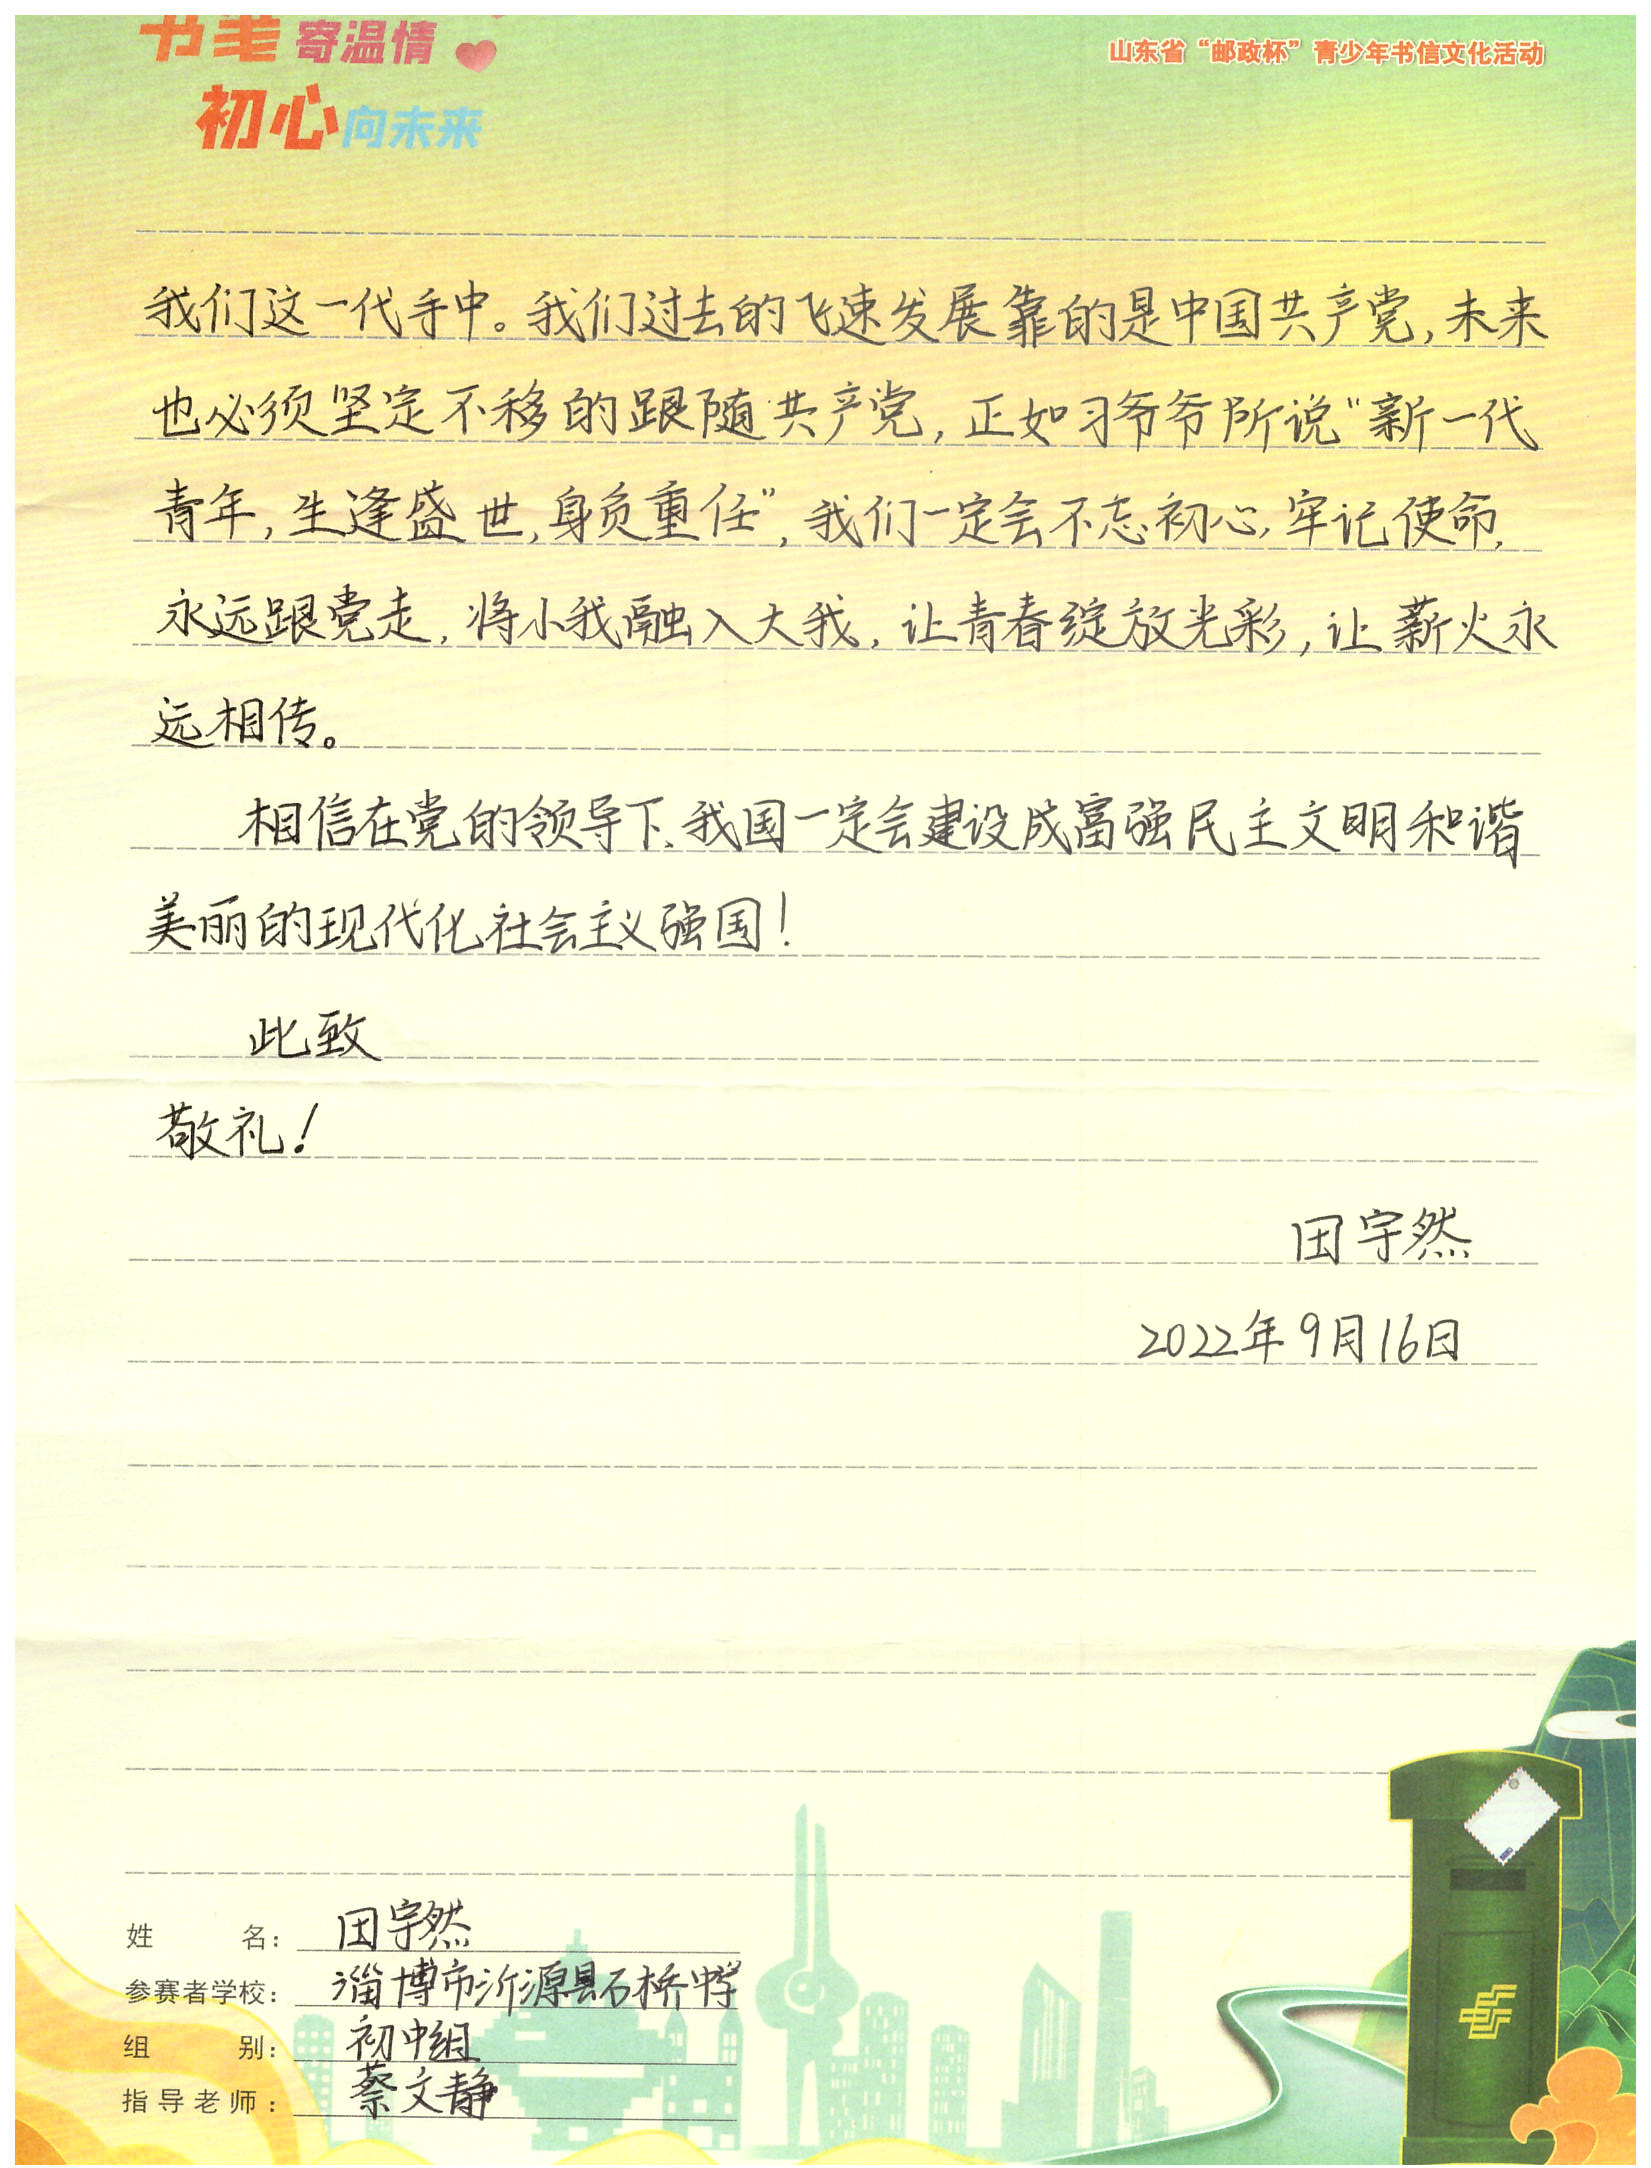 书笔寄温情
初心向未来
山东省“邮政杯”青少年书信文化活动
我们这一代手中。我们过去的飞速发展靠的是中国共产党,未来
也必须坚定不移的跟随共产党,正如习爷爷所说“新一代
青年,生逢盛世,身负重任”,我们一定会不忘初心,牢记使命,
永远跟党走,将小我融入大我,让青春绽放光彩,让薪火永
远相传。
相信在党的领导下、我国一定会建设成富强民主文明和谐
美丽的现代化社会主义强国!
此致
敬礼!
田宇然
2022年9月16日
姓名:田宇然
参赛者学校:淄博市沂源县石桥中学
组别:初中组
指导老师:蔡文静